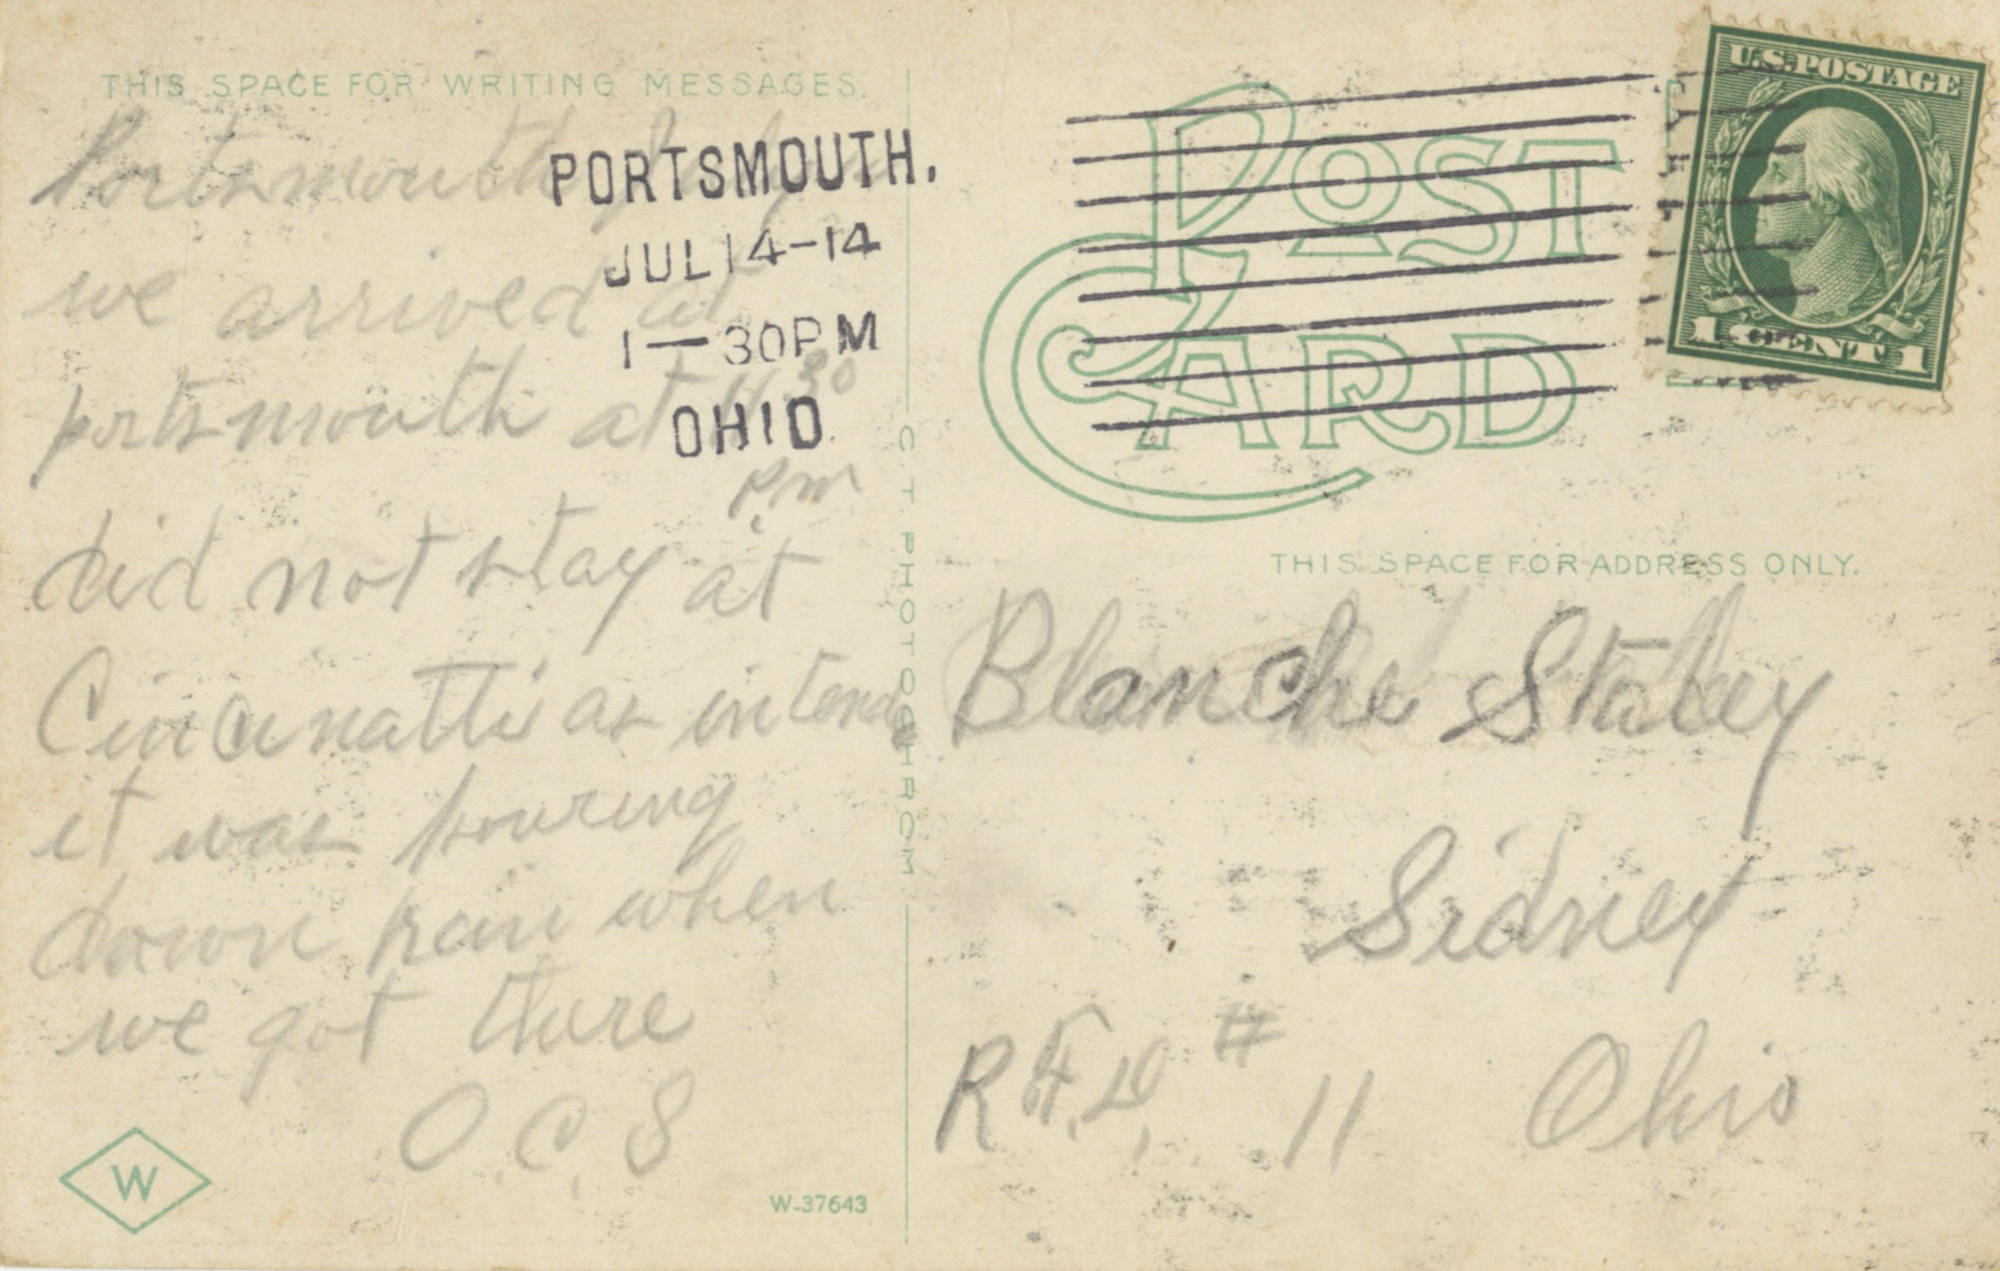 THIS SPACE FOR WRITING MESSAGES.
Portsmouth
we arrived at
portsmouth at 11 30
P.m
did not stay at
Cincinatti as intend
it was pouring
down rain when
we got thure
O. C. S
W
W-37643
PORTSMOUTH.
JUL 14-14
1-30PM
OHIO
C. T. PHOTOCHROM
POST
CARD
U.S.POSTAGE
1 CENT 1
THIS SPACE FOR ADDRESS ONLY.
Blanche Staley
Sidney
R.F.D. # 11 Ohio